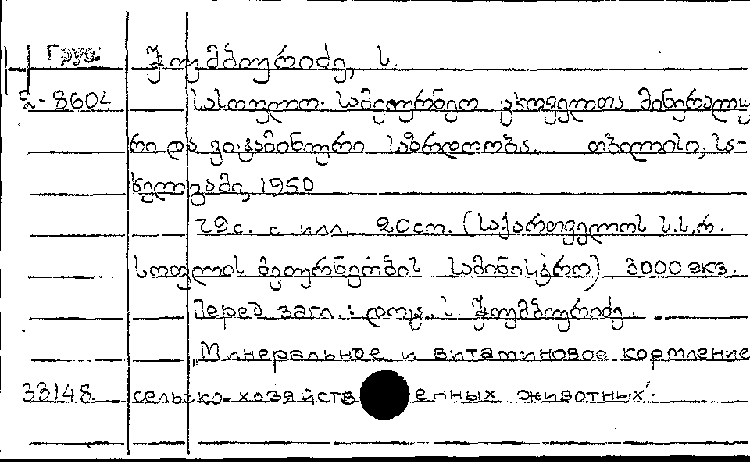 Груз. ჭუმბურიძე, ს.
2-8602 სასოფლო სამეურნეო ცხოველთა მინერალუ
რი და ვიტამინური საზრდოობა. თბილისი, სა-
ხელგამი, 1950
72с. с илл. 20cm. (საქართველოს ს.ს.რ.
სოფლის მეურნეობის სამინისტრო) 3000 экз.
Перед загл.: დოც. ს. ჭუმბურიძე.
„Минеральное и витаминовое кормление
33148 сельско-хозяйств енных животных".